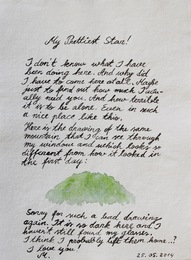 My Prettiest Star!
I don't know what I have
been doing here. And why did
I have to come here at all. Maybe
just to find out how much I actu-
ally need you. And how terrible
it is to be alone. Even in such
a nice place like this.
Here is the drawing of the same
mountain, that I can see through
my window and which looks so
different from how it looked in
the first day:
Sorry for such a bad drawing
again. It is so dark here and I
haven't still found my glasses.
I think I probably left them home..?
I love you!
M.
25.05.2014